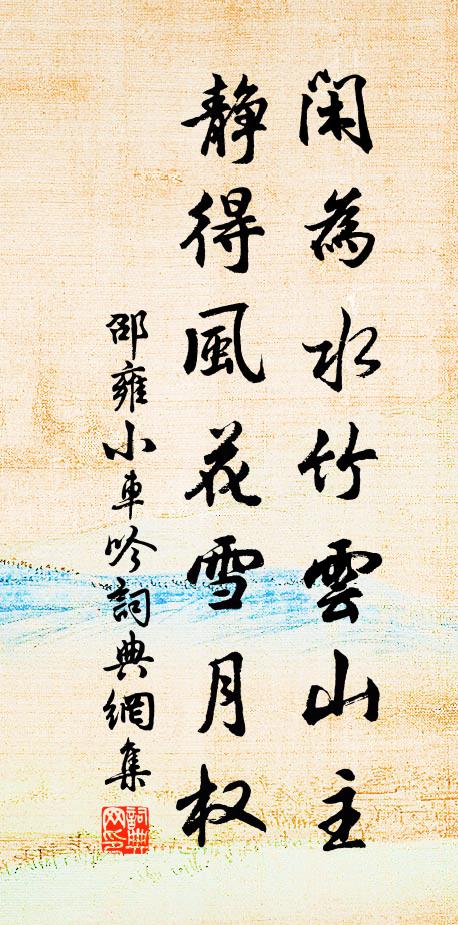 閑為水竹雲山主
静得風花雪月权
邵雍小車吟詞典網集
詞典网印